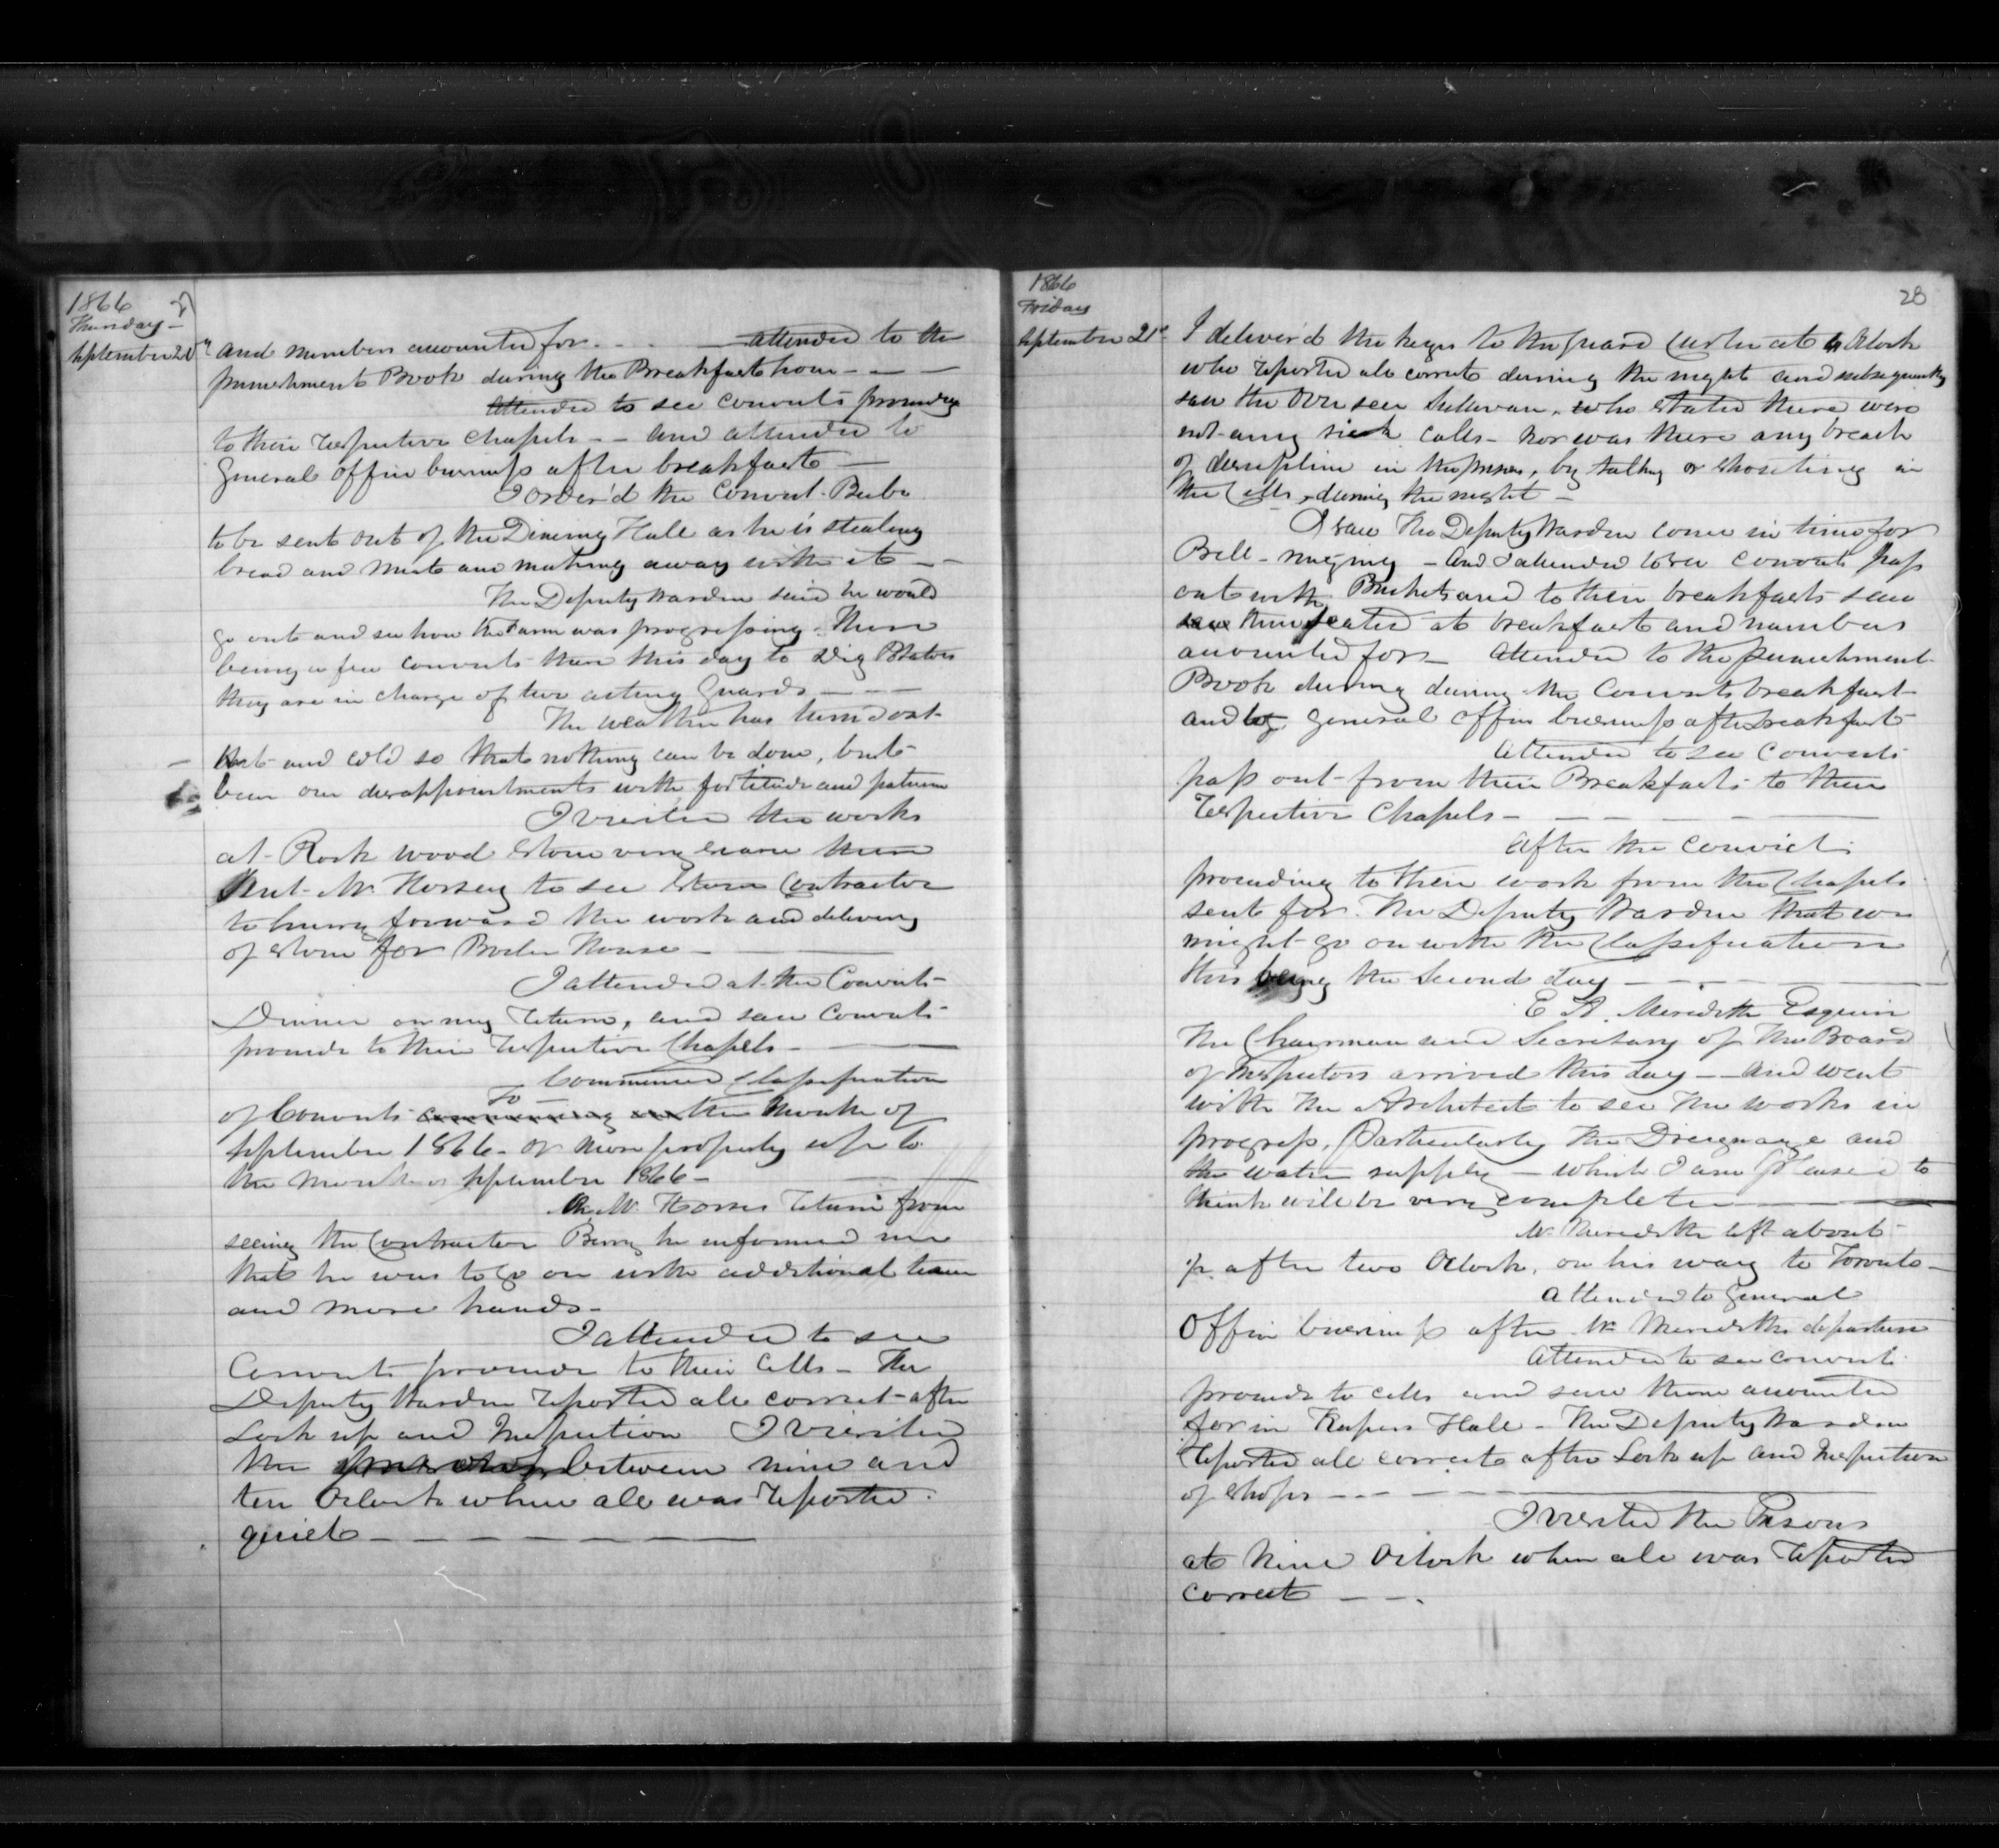 1866
Thursday -
September 20th
and numbers accounted for - - - - attended to the
punishment Book during the Breakfast hour - - -
attended to see convicts proceeding
to their respective Chapels - - and attended to
General office business after breakfast -
I order'd the convict Beebe
to be sent out of the Dining Hall as he is stealing
bread and meat and making away with it - -
The Deputy Warden said he would
go out and see how the Farm was progressing. There
being a few convicts there this day to dig Potatoes
they are in charge of two acting Guards - - -
The weather has turn'd out
wet and cold so that nothing can be done, but
bear our disappointments with fortitude and patience
I visited the works
at Rockwood Stone very scarce there
Sent Mr Horsey to see Stone Contractor
to hurry forward the work and delivery
of Stone for Boiler House -
I attended at the Convicts
Dinner on my return, and saw convicts
proceede to their respective Chapels -
Commenced Classification
of Convicts commencing on to the Month of
September 1866 - or more properly up to
the month of September 1866 -
On Mr Horsey return from
seeing the Contractor Berry he informed me
that he was to go on with additional team
and more hands -
I attended to see
Convicts proceede to their Cells - The
Deputy Warden reported all correct after
Lock up and Inspection I visited
the between nine and
ten Oclock when all was reported
quiet -
28
1866
Friday
September 21st
I deliver'd the keys to the guard at Oclock
who reported all correct during the night and subsequently
saw the Overseer Sullivan, who stated there were
not any sick calls - nor was there any breach
of discipline in the prison, by talking or shouting in
the Cells, during the night -
I saw The Deputy Warden come in time for
Bell-ringing - and I attended to see convicts pass
out with Buckets and to their breakfasts saw
saw them seated at breakfast and numbers
accounted for - Attended to the punishment
Book during during the Convicts breakfast
and to general office business after breakfast
Attended to see convicts
pass out from their Breakfasts to their
respective Chapels -
After the convicts
proceeding to their work from the Chapels
sent for The Deputy Warden that we
might go on with the Classification
this being the Second day -
E A. Meredith Esquire
The Chairman and Secretary of the Board
of Inspectors arrived this day - and went
with the Architect to see the works in
progress, Particularly the Drainage and
the water supply - which I am pleased to
think will be very complete -
Mr Meredith left about
½ after two Oclock, on his way to Toronto -
Attended to general
Office business after Mr Merediths departure
Attended to see convicts
proceede to cells and saw them accounted
for in Keepers Hall - The Deputy Warden
reported all correct after Lock up and Inspection
of Shops - - -
I visited the Prisons
at Nine Oclock when all was reported
correct - - .